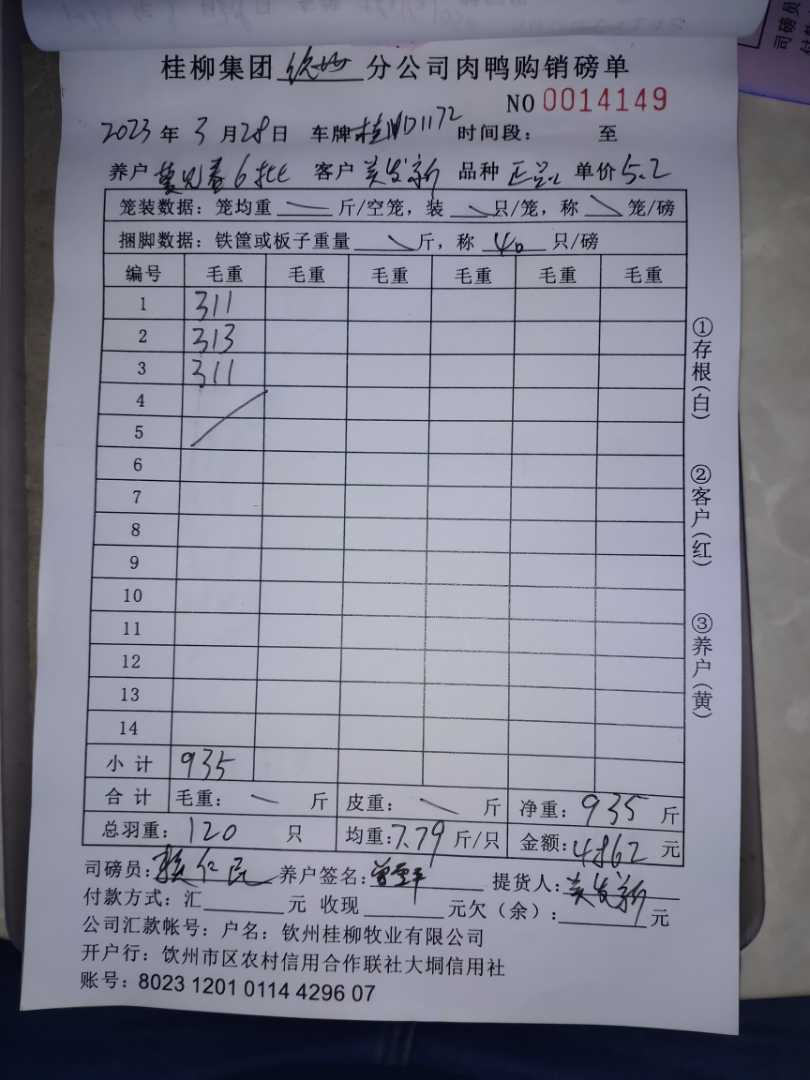 桂柳集团 钦州 分公司肉鸭购销磅单
NO 0014149
2023 年 3 月 28 日 车牌 桂 D1172 时间段： 至
养户 6批 客户 发新 品种 正 单价 5.2
笼装数据：笼均重 斤/空笼，装 只/笼，称 笼/磅
捆脚数据：铁筐或板子重量 斤，称 40 只/磅
编号 毛重 毛重 毛重 毛重 毛重 毛重
1 311
2 313
3 311
4
5
6
7
8
9
10
11
12
13
14
小 计 935
合 计 毛重： 斤 皮重： 斤 净重：935 斤
总羽重：120 只 均重：7.79 斤/只 金额：4862 元
司磅员： 仁民 养户签名： 提货人： 发新
付款方式：汇 元 收现 元欠（余）： 元
公司汇款帐号：户名：钦州桂柳牧业有限公司
开户行：饮州市区农村信用合作联社大垌信用社
账号：8023 1201 0114 4296 07
①存根(白)
②客户(红)
③养户(黄)
司磅员